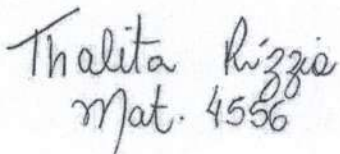 Thalita Rízzia
Mat. 4556